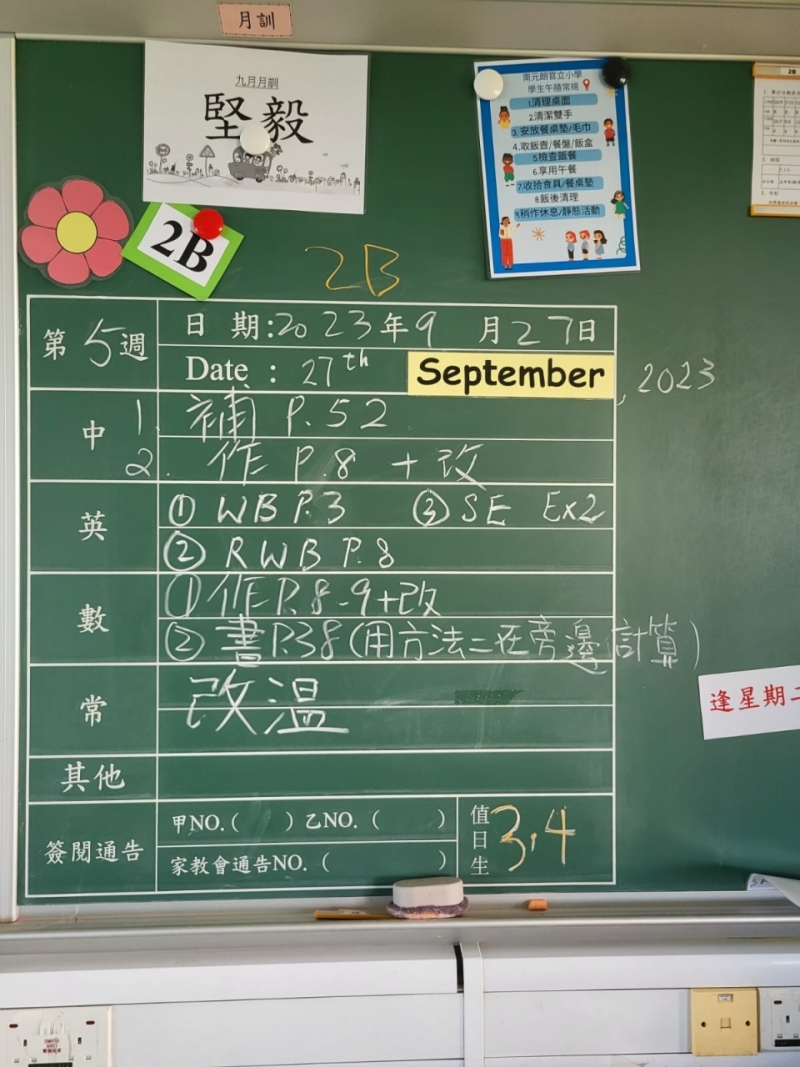 月訓
九月月訓
堅毅
南元朗官立小學
學生午膳常規
1.清理桌面
2.清潔雙手
3.安放餐桌墊/毛巾
4.取飯壺/餐盤/飯盒
5.檢查飯餐
6.享用午餐
7.收拾食具/餐桌墊
8.飯後清理
9.稍作休息/靜態活動
2B
2B
2B
第5週
日 期:2023年9 月27日
Date : 27th September, 2023
中
1. 補 P.52
2. 作 P.8 + 改
英
① WB P.3 ③ SE Ex2
② RWB P.8
數
① 作P.8-9+改
② 書P.38(用方法二在旁邊計算)
常
改溫
其他
簽閱通告
甲NO.( ) 乙NO.( )
家教會通告NO.( )
值日生
3,4
逢星期二